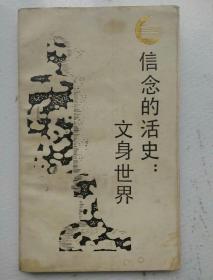 信念的活史：
文身世界